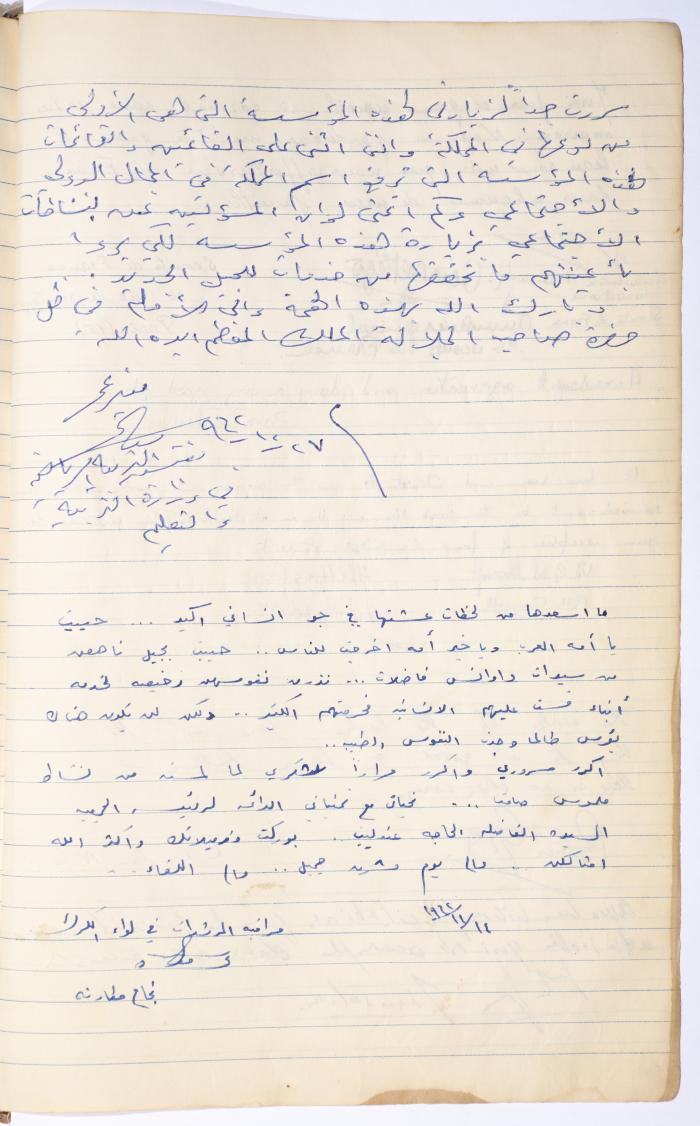 سررت جداً لزيارتي لهذه المؤسسة التي هي الأولى
من نوعها في المملكة وانني اثني على القائمين والقائمات
لهذه المؤسسة التي ترفع اسم المملكة في المجال الدولي
والاجتماعي وكم اتمنى لو ان المسؤولين عن النشاطات
الاجتماعي بزيارة هذه المؤسسة لكي يروا
بأعينهم ما تحققها من خدمات للجيل الجديد
وبارك الله بهذه الهمة وافي الأمانة في ظل
حضرة صاحب الجلالة الملك المعظم ايده الله.
٩٦٢/١٢/٢٧
مفتش التربية الرياضية
في وزارة التربية
والتعليم
ما اسعدها من لحظات عشتها في جو انساني اكيد ... حييت
يا أمة العرب ويا خير أمة اخرجت للناس .. حييت بجيل ناهض
من سيدات واوانس فاضلات ... نذرن نفوسهن رخيصة لخدمة
أبناء قست عليهم الانسانية فحرمتهم الكثير .. ولكن لن يكون هناك
بؤس طالما وجدت النفوس الطيبة ..
اكرر سروري واكرر مراراً شكري لما لمسته من نشاط
ملموس صامت ... تحياتي مع تمنياتي الدائمة لرئيسة الجمعية
السيدة الفاضلة الحاجه عندليب .. بوركت وزميلاتك واكثر الله
امثالكن .. والى يوم مشرق جميل .. والى اللقاء ..
١٩٦٢/١٢/١٤
مراقبة المرشدات في لواء الكرك
نجاح مطارنه